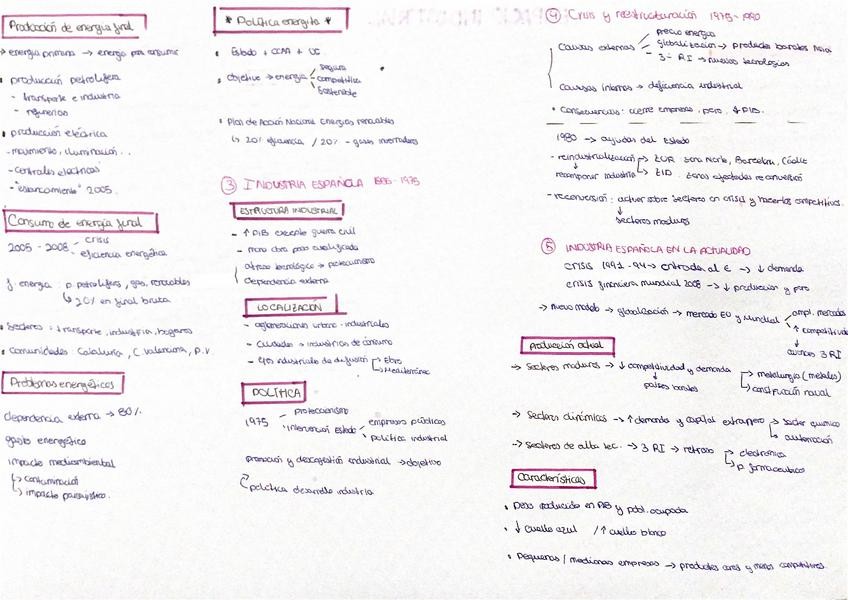 Producción de energía final
→ energía primaria → energía para consumir
• producción petrolífera
- transporte e industria
- refinerías
• producción eléctrica
- movimiento, iluminación...
- centrales eléctricas
- "estancamiento" 2005.
Consumo de energía final
2005 - 2008 - crisis
- eficiencia energética
f. energía: p. petrolífers, gas, renovables
↳ 20% en final bruta
• Sectores: transporte, industria, hogares
• comunidades: Cataluña, C. Valenciana, P.V.
Problemas energéticos
dependencia externa → 80%
gasto energético
impacto medioambiental
↳ contaminación
↳ impacto paisajístico.
* Política energética *
• Estado + CCAA + UE
• objetivo → energía
segura
competitiva
sostenible
• Plan de Acción Nacional Energías renovables
↳ 20% eficiencia / 20% - gases invernadero
③ INDUSTRIA ESPAÑOLA 1975
ESTRUCTURA INDUSTRIAL
- ↑ PIB excepto guerra civil
- mano obra poco cualificada
atraso tecnológico → proteccionismo
dependencia externa
LOCALIZACIÓN
- aglomeraciones urbano-industriales
- ciudades → industrias de consumo
- ejes industriales de difusión
→ Ebro
→ Mediterráneo
POLÍTICA
1975
proteccionismo
intervención Estado
empresas públicas
política industrial
promoción y descongestión industrial → objetivo
política desarrollo industria
④ Crisis y reestructuración 1975 - 1990
causas externas
precio energía
globalización → productos baratos
3ª RI → nuevas tecnologías
causas internas → deficiencia industrial
• consecuencias: cierre empresas, paro, ↓ PIB.
1980 → ayudas del Estado
- reindustrialización
→ ZUR zona Norte, Barcelona, Cádiz
recomponer industria
→ ZID zonas afectadas reconversión
- reconversión: actuar sobre sectores en crisis y hacerlos competitivos.
↓
sectores maduros
⑤ INDUSTRIA ESPAÑOLA EN LA ACTUALIDAD
crisis 1991-94 → entrada al € → ↓ demanda
crisis financiera mundial 2008 → ↓ producción y paro
→ nuevo modelo → globalización → mercado EU y Mundial
ampl. mercados
↑ competitividad
avances 3 RI
Producción actual
→ Sectores maduros → ↓ competitividad y demanda
→ metalurgia (metales)
países baratos
→ construcción naval
→ Sectores dinámicos → ↑ demanda y capital extranjero
→ sector químico
→ automoción
→ Sectores de alta tec. → 3 RI → retraso
→ electrónica
→ p. farmacéutico
Características
• Peso reducido en PIB y pobl. ocupada
• ↓ cuello azul / ↑ cuello blanco
• Pequeñas / medianas empresas → productos caros y menos competitivos.